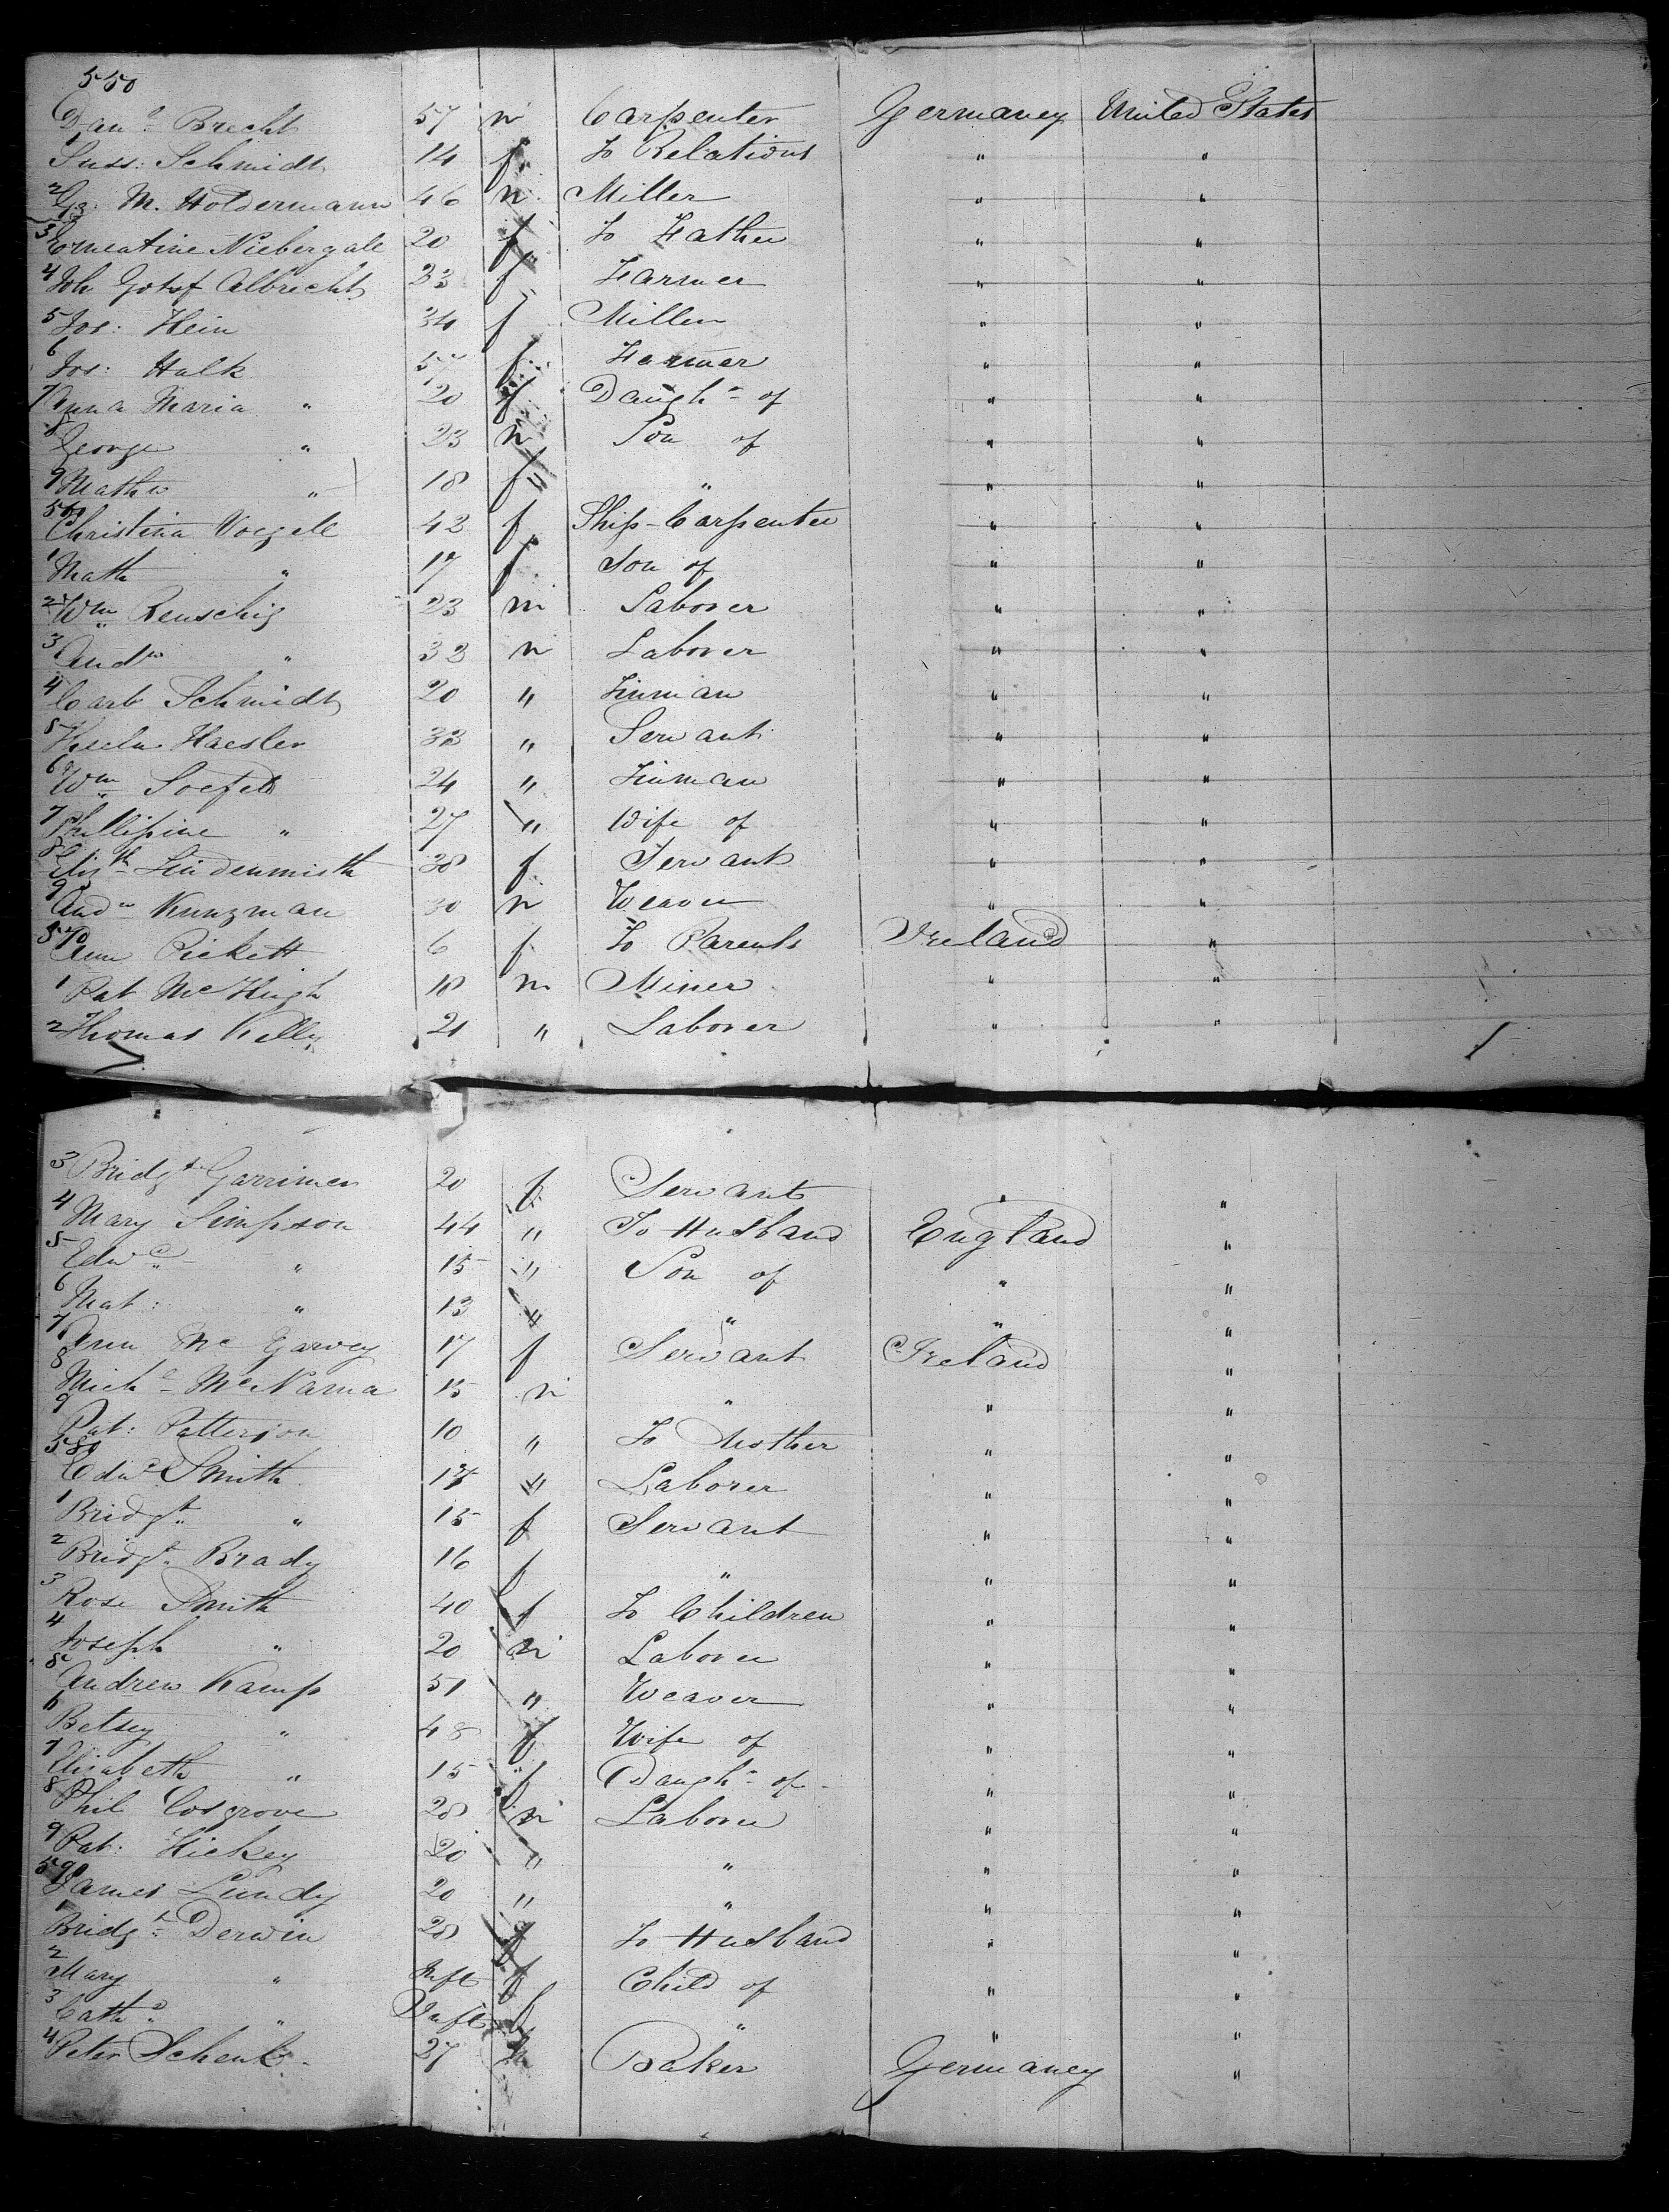 550
Dan.l Brecht 57 m Carpenter Germaney United States
1 Suss: Schmidt 14 f To Relations " "
2 Gg. M. Holdermann 46 m Miller " "
3 Erneatine Niebergall 20 f To Father " "
4 Joh Gotsf Albrecht 33 f Farmer " "
5 Jos: Hein 34 f Miller " "
6 Jos: Halk 57 f Farmer " "
7 Anna Maria " 20 f Daugh.r of " "
8 George " 23 m Son of " "
9 Mathw " 18 f " " "
560 Christina Voegele 42 f Ship-Carpenter " "
1 Math " 17 f Son of " "
2 Wm Renschig 23 m Laborer " "
3 Andw " 32 m Laborer " "
4 Carl Schmidt 20 " Tinman " "
5 Haesler 33 " Servant " "
6 Wm Soefeld 24 " Tinman " "
7 Phillipine " 27 " Wife of " "
8 Elizth Lindenmisth 38 f Servant " "
9 Andw Kunzman 30 m Weaver " "
570 Ann Rickett 6 f To Parents Ireland "
1 Pat McHugh 18 m Miner " "
2 Thomas Kelly 21 " Laborer " "
3 Bridgt Garrimen 20 f Servant " "
4 Mary Simpson 44 " To Husband England "
5 Edwd " 15 " Son of " "
6 Mat: " 13 " " " "
7 Ann Mc Garvey 17 f Servant Ireland "
8 Michl McNama 15 m " " "
9 Pat: Patterson 10 " To Mother " "
580 Edwd Smith 17 " Laborer " "
1 Bridgt " 15 f Servant " "
2 Bridgt Brady 16 f " " "
3 Rose Smith 40 f To Children " "
4 Joseph " 20 m Laborer " "
5 Andrew Kamp 51 " Weaver " "
6 Betsey " 48 f Wife of " "
7 Elisabeth " 15 f Daugh.r of " "
8 Phil Cosgrove 28 m Laborer " "
9 Pat: Hickey 20 " " " "
590 James Lundy 20 " " " "
1 Bridgt Derwin 28 f To Husband " "
2 Mary " Inft f Child of " "
3 Cath.e " Inft f " " "
4 Peter Schenk 27 m Baker Germaney "